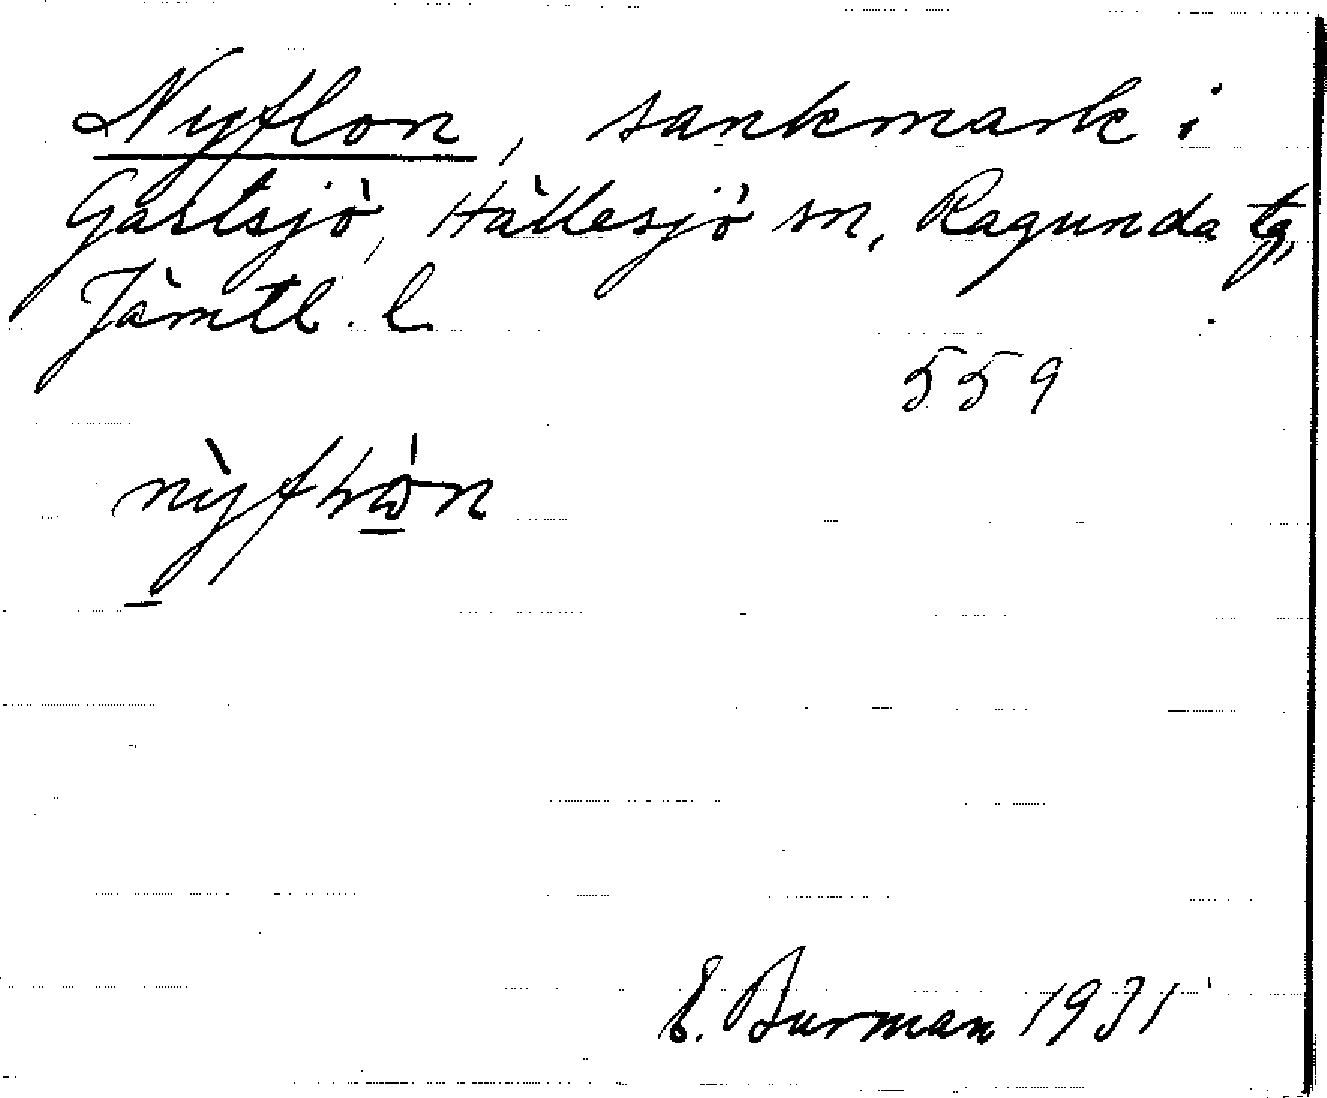 Nyflon, sankmark i
Gastsjö, Hällesjö sn, Ragunda tg,
Jämtl. l.
559
E. Burman 1931